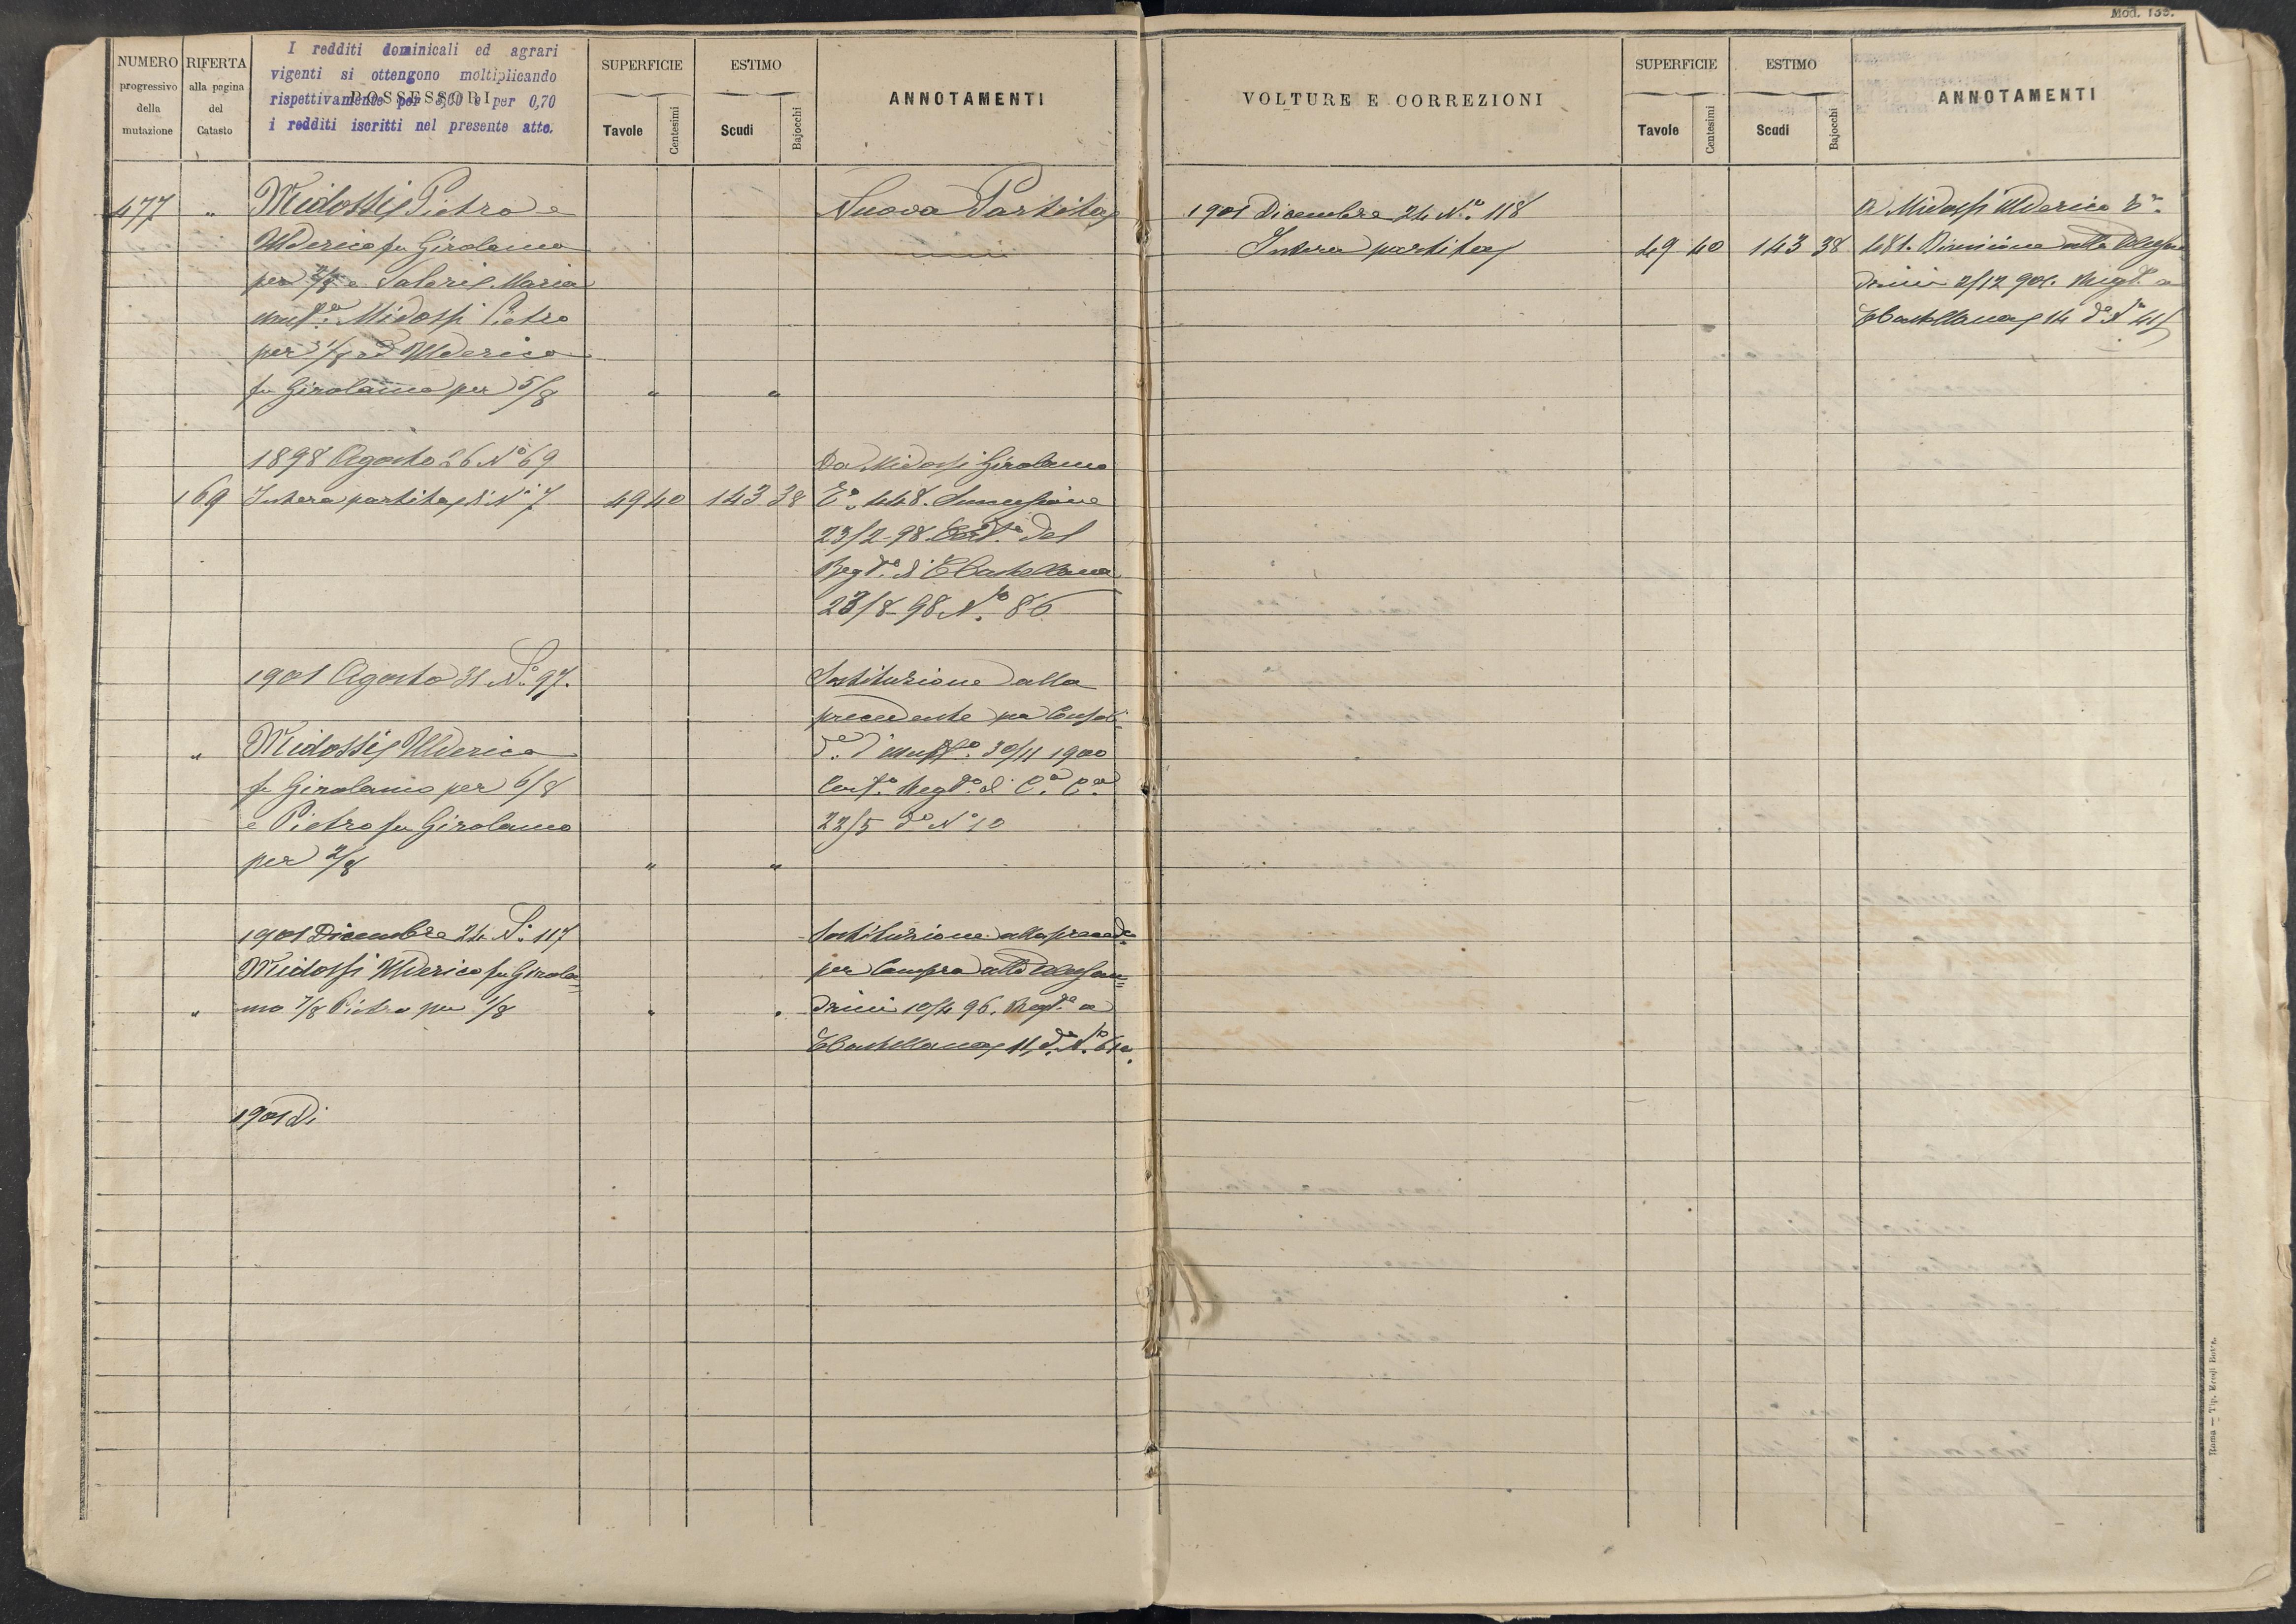 Mod. 135.
NUMERO progressivo della mutazione
RIFERTA alla pagina del Catasto
I redditi dominicali ed agrari
vigenti si ottengono moltiplicando
rispettivamente per e per 0,70
i redditi iscritti nel presente atto.
POSSESSORI
SUPERFICIE
Tavole Centesimi
ESTIMO
Scudi Bajocchi
ANNOTAMENTI
477 " Midossi Pietro e Nuova Partita
Ulderico fu Girolamo
per 2/8 e Saleri Maria
usuf.a Midossi Pietro
per 1/8 ed Ulderico
fu Girolamo per 5/8 " "
1898 Agosto 26 No 69 Da Midossi Girolamo
169 Intera partita di N.i 7 49 40 143 38 Ea 448. Successione
23/2-98 Cert.o del
Reg.o di CCastellana
23/8-98 No. 86
1901 Agosto 31 No. 97. Sostituzione alla
precedente per Consoli
" Midossi Ulderico d'usuf.o 30/11 1900
fu Girolamo per 6/8 Cert.o Reg.o di C.a C.a
e Pietro fu Girolamo 22/5 do No 10
per 2/8 " "
1901 Dicembre 24 No. 117 Sostituzione alla preced.e
Midossi Ulderico fu Girola= per Compra atto Alessan=
" mo 7/8 Pietro per 1/8 " " drini 10/4 96. Reg.o a
CCastellana 11 do No.
1901 Di
VOLTURE E CORREZIONI
SUPERFICIE
Tavole Centesimi
ESTIMO
Scudi Bajocchi
ANNOTAMENTI
1901 Dicembre 24 No. 118 A Midossi Ulderico Ea
Intera partita 49 40 143 38 481. Divisione atto Alessan
drini 2/12 901. Reg.o a
CCastellana 14 do No 41
Roma — Tip. Eredi Bava.